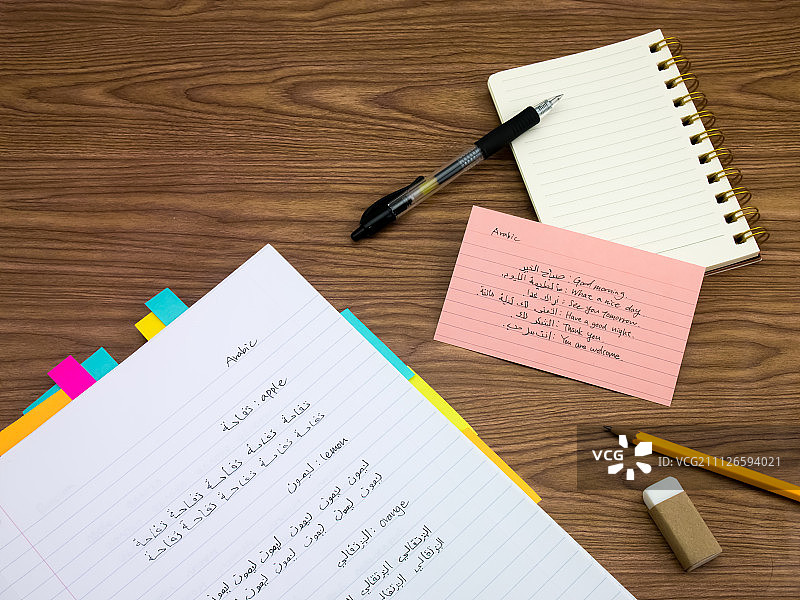 Arabic
صباح الخير : Good morning.
: What a nice day.
أراك غدا. : See you tomorrow.
لك ليلة هانئة. : Have a good night.
الشكر لك. : Thank you
: You are welcome
Arabic
تفاحة : apple
تفاحة تفاحة تفاحة تفاحة تفاحة
تفاحة تفاحة تفاحة تفاحة تفاحة
ليمون : lemon
ليمون ليمون ليمون ليمون ليمون ليمون
ليمون ليمون ليمون ليمون ليمون
البرتقالي : orange
البرتقالي البرتقالي البرتقالي
البرتقالي البرتقالي
VCG
VCG ID: VCG211126594021